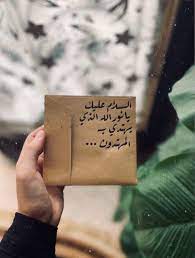 السلام عليك
يانور الله الذي
يهتدي به
المهتدون ...